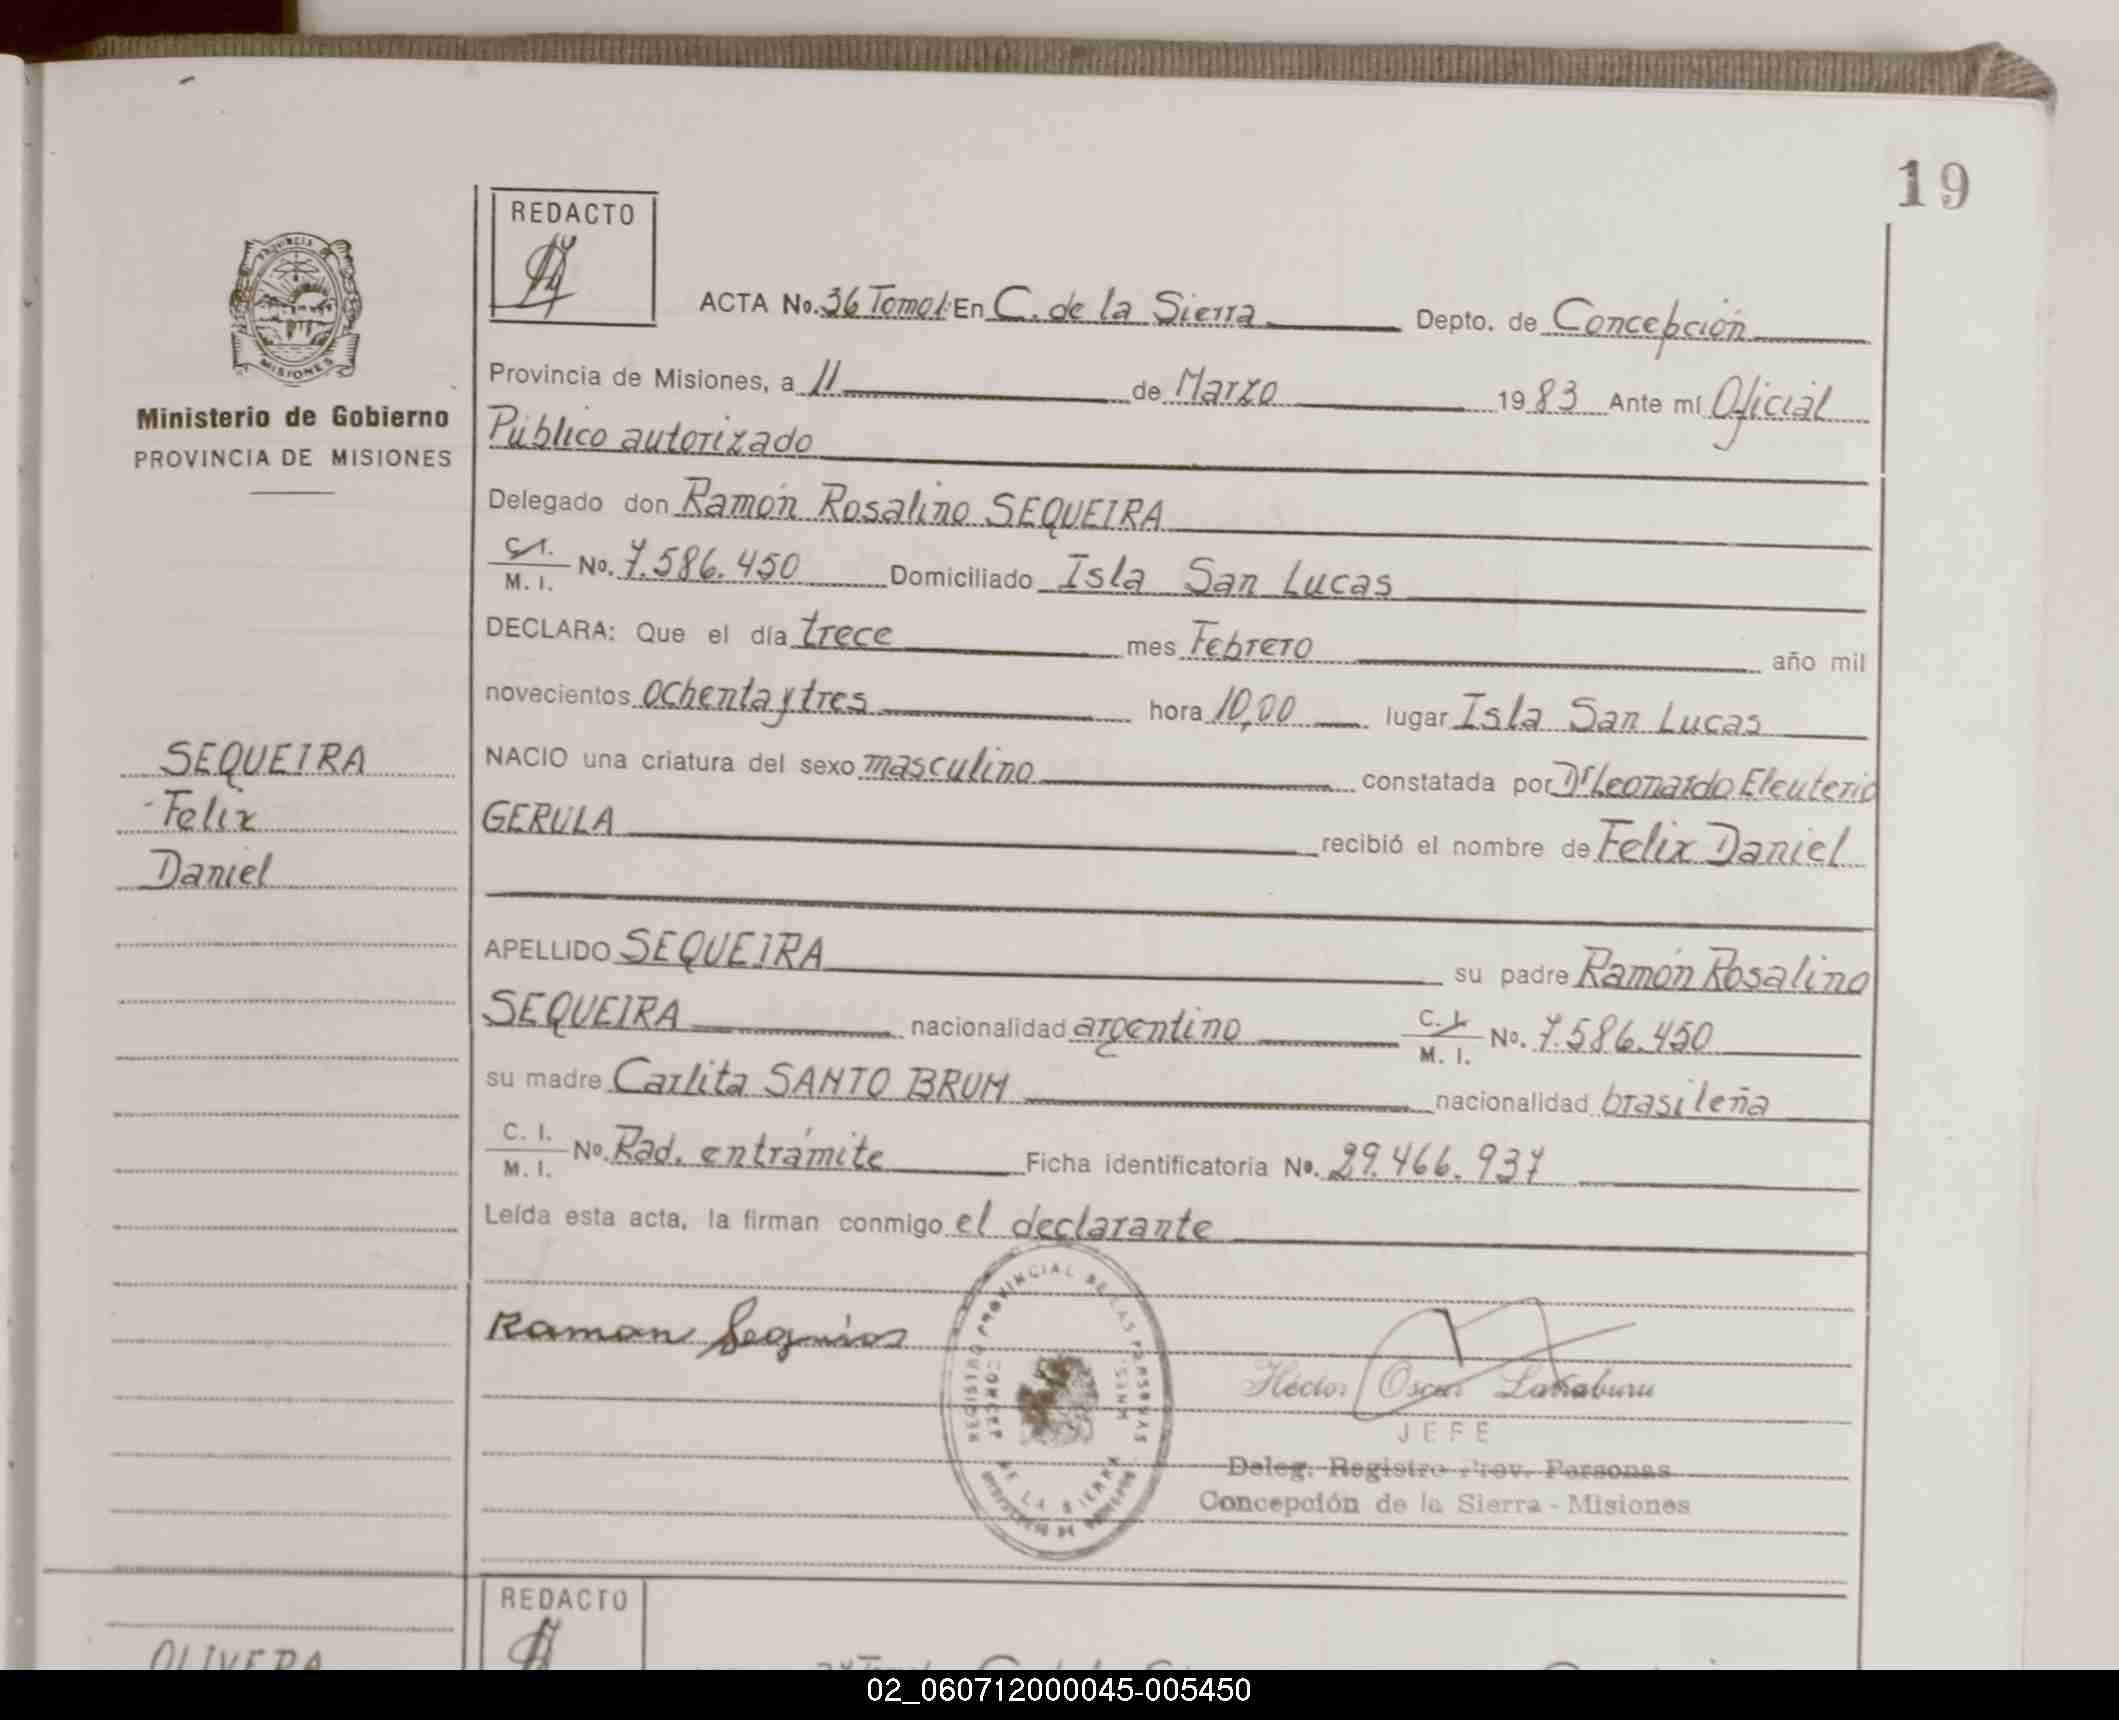 19
REDACTO
PROVINCIA
MISIONES
Ministerio de Gobierno
PROVINCIA DE MISIONES
ACTA No. 36 Tomo 1: En C. de la Sierra Depto. de Concepción
Provincia de Misiones, a 11 de Marzo 1983 Ante mí Oficial
Público autorizado
Delegado don Ramón Rosalino SEQUEIRA
C. I.
M. I. No. 7.586.450 Domiciliado Isla San Lucas
DECLARA: Que el día trece mes Febrero año mil
novecientos ochenta y tres hora 10,00 lugar Isla San Lucas
SEQUEIRA
Felix
Daniel
NACIO una criatura del sexo masculino constatada por Dr Leonardo Eleuterio
GERULA recibió el nombre de Felix Daniel
APELLIDO SEQUEIRA su padre Ramón Rosalino
SEQUEIRA nacionalidad argentino C. I. M. I. No. 7.586.450
su madre Carlita SANTO BRUM nacionalidad brasileña
C. I.
M. I. No. Rad. en trámite Ficha identificatoria No. 29.466.937
Leída esta acta, la firman conmigo el declarante
Ramon
REGISTRO PROVINCIAL DE LAS PERSONAS
DE LA SIERRA
Héctor Oscar
JEFE
Deleg. Registro Prov. Personas
Concepción de la Sierra - Misiones
REDACTO
OLIVERA
02_060712000045-005450